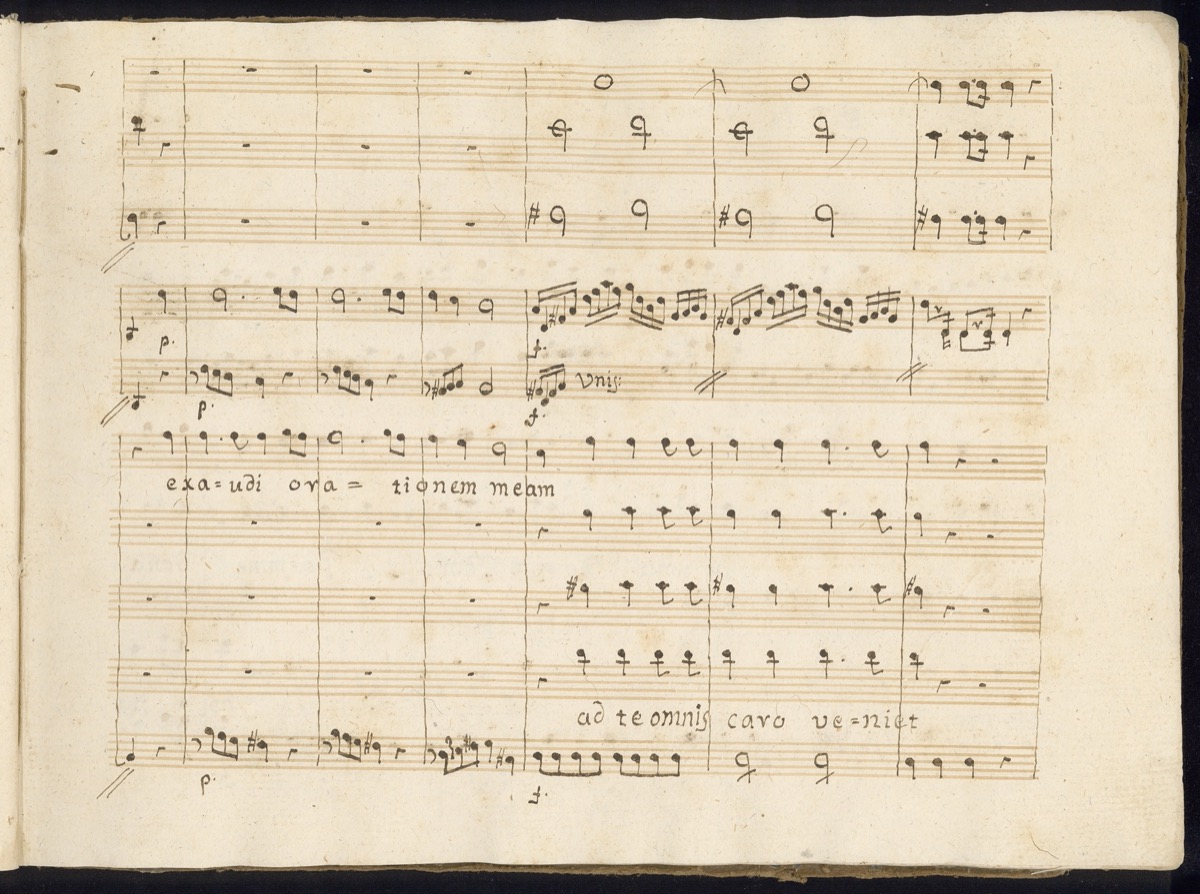 p.
f.
p.
Unis:
f.
exa=udi ora= tionem meam
ad te omnis caro ve=niet
p.
f.